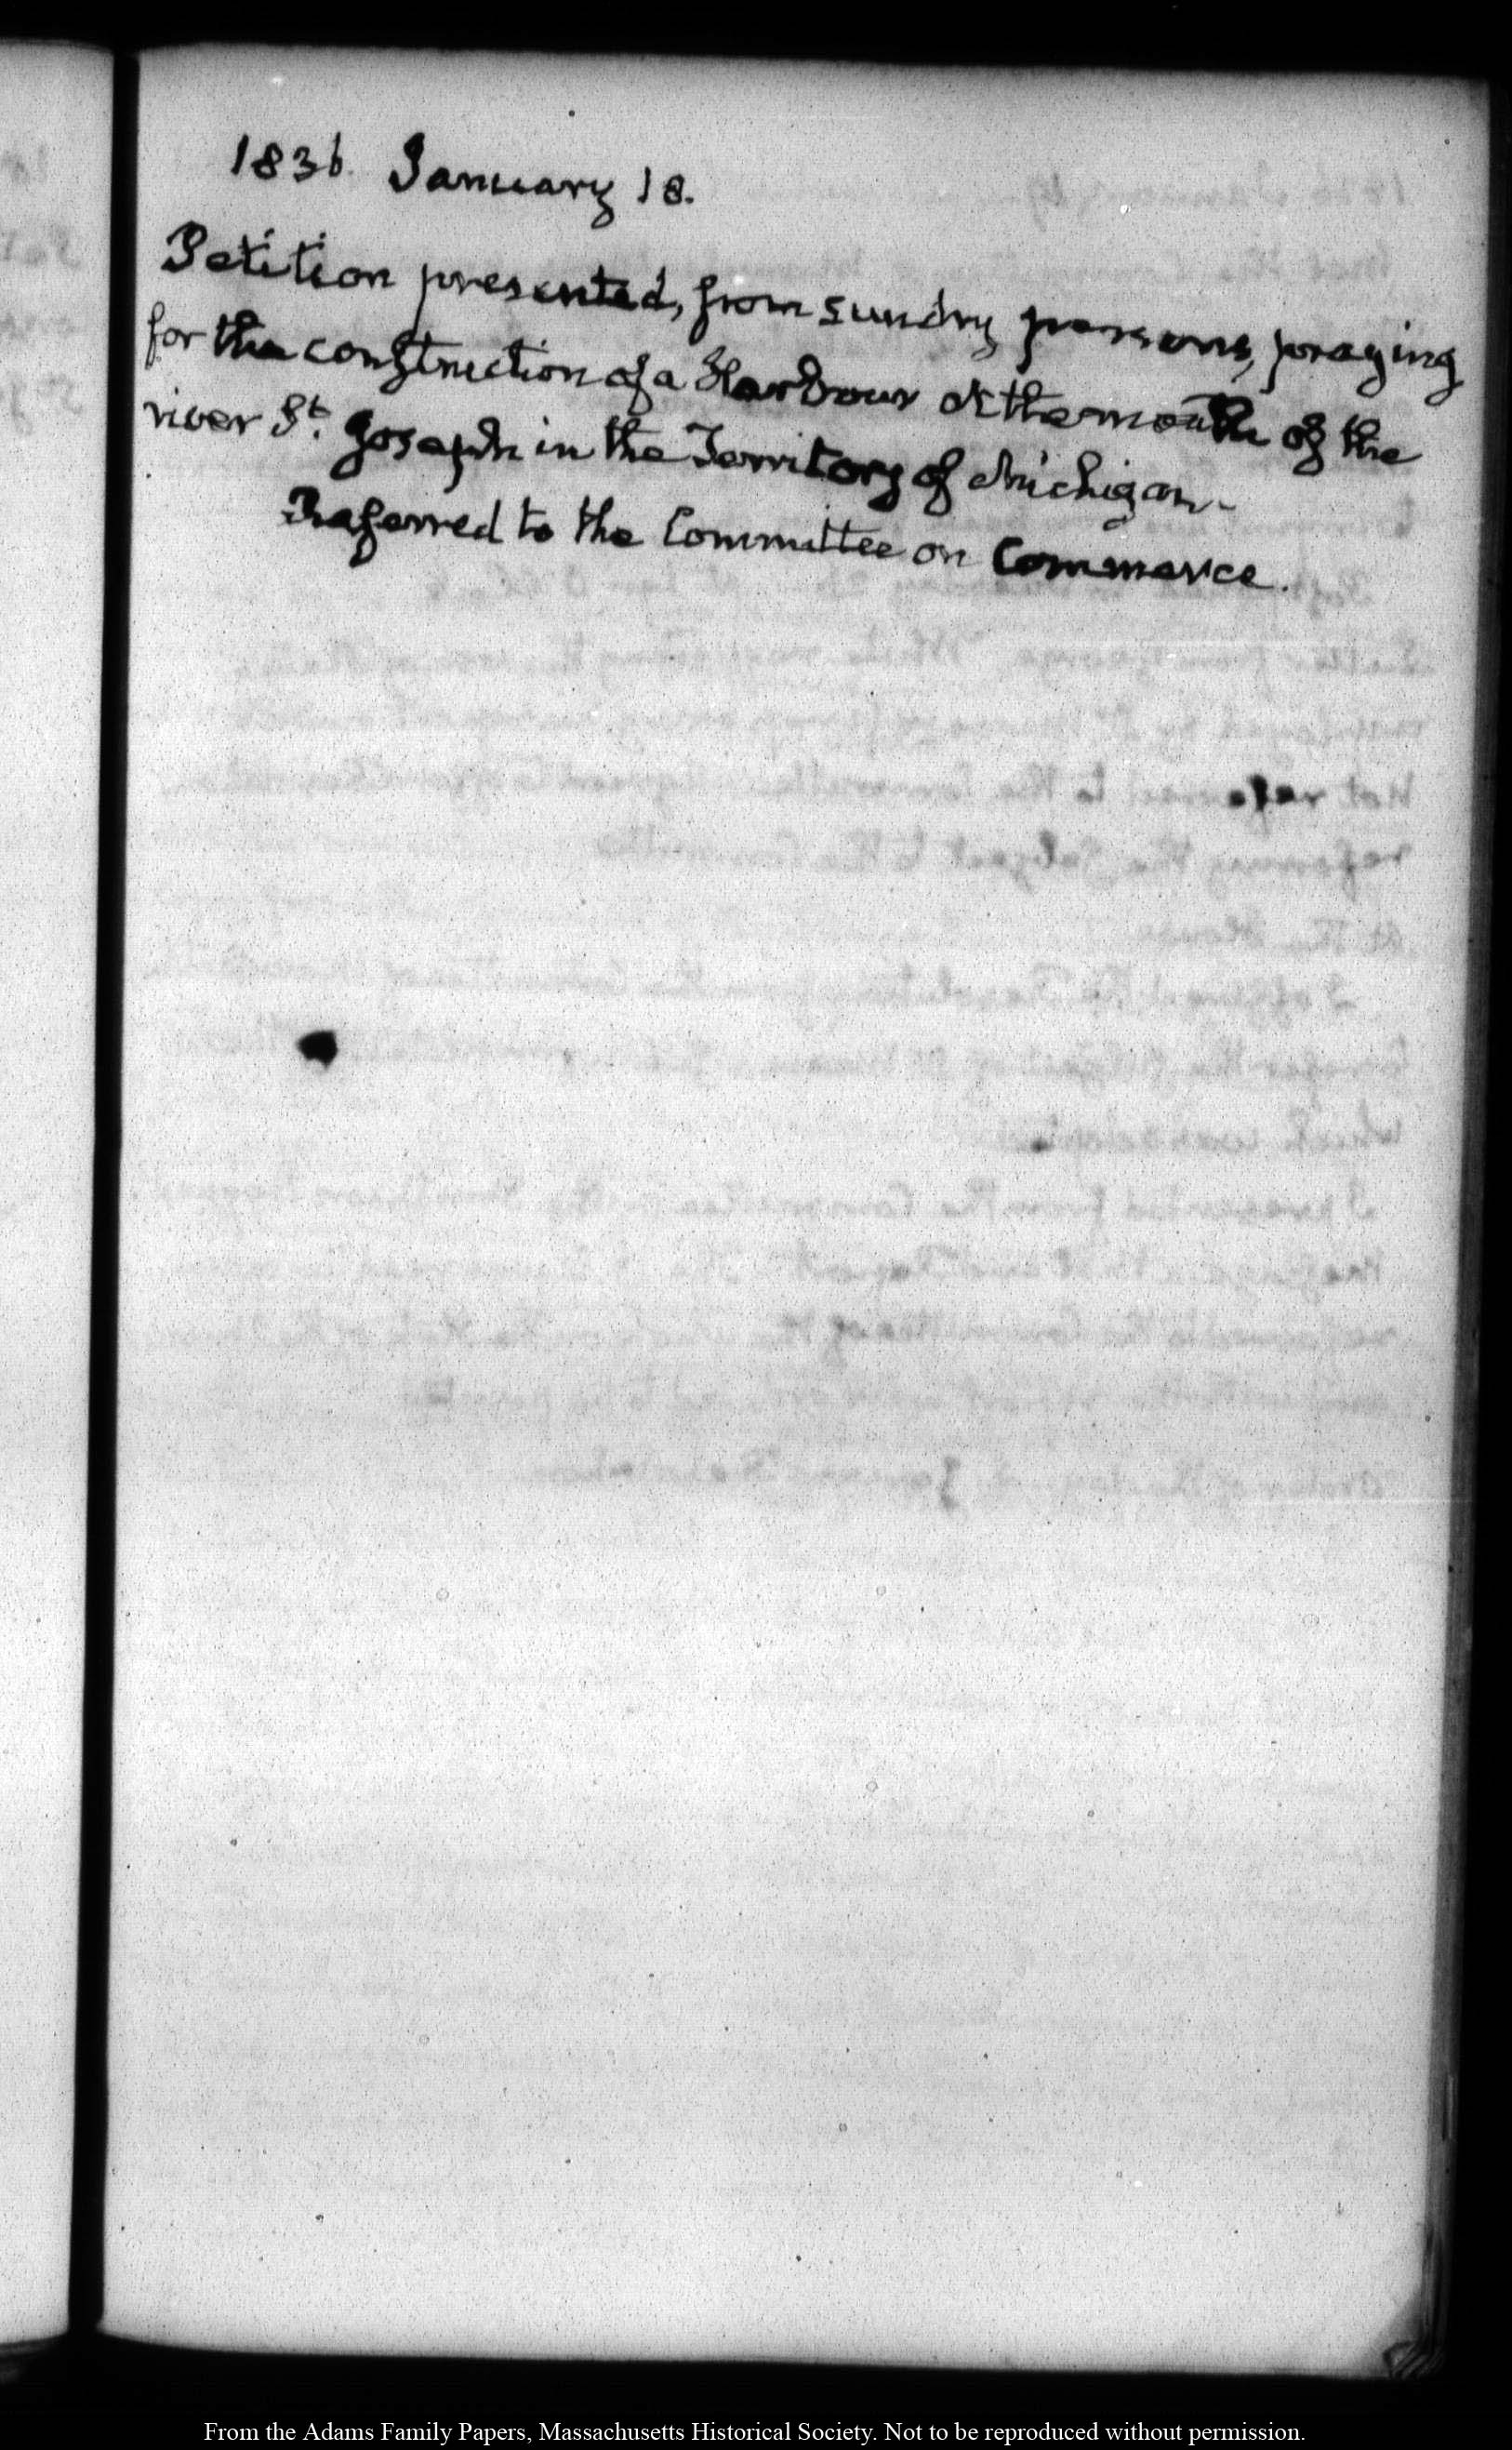 1836. January 18.
Petition presented, from sundry persons, praying
for the construction of a Harbour at the mouth of the
river St. Joseph in the Territory of Michigan.
Referred to the Committee on Commerce.
From the Adams Family Papers, Massachusetts Historical Society. Not to be reproduced without permission.